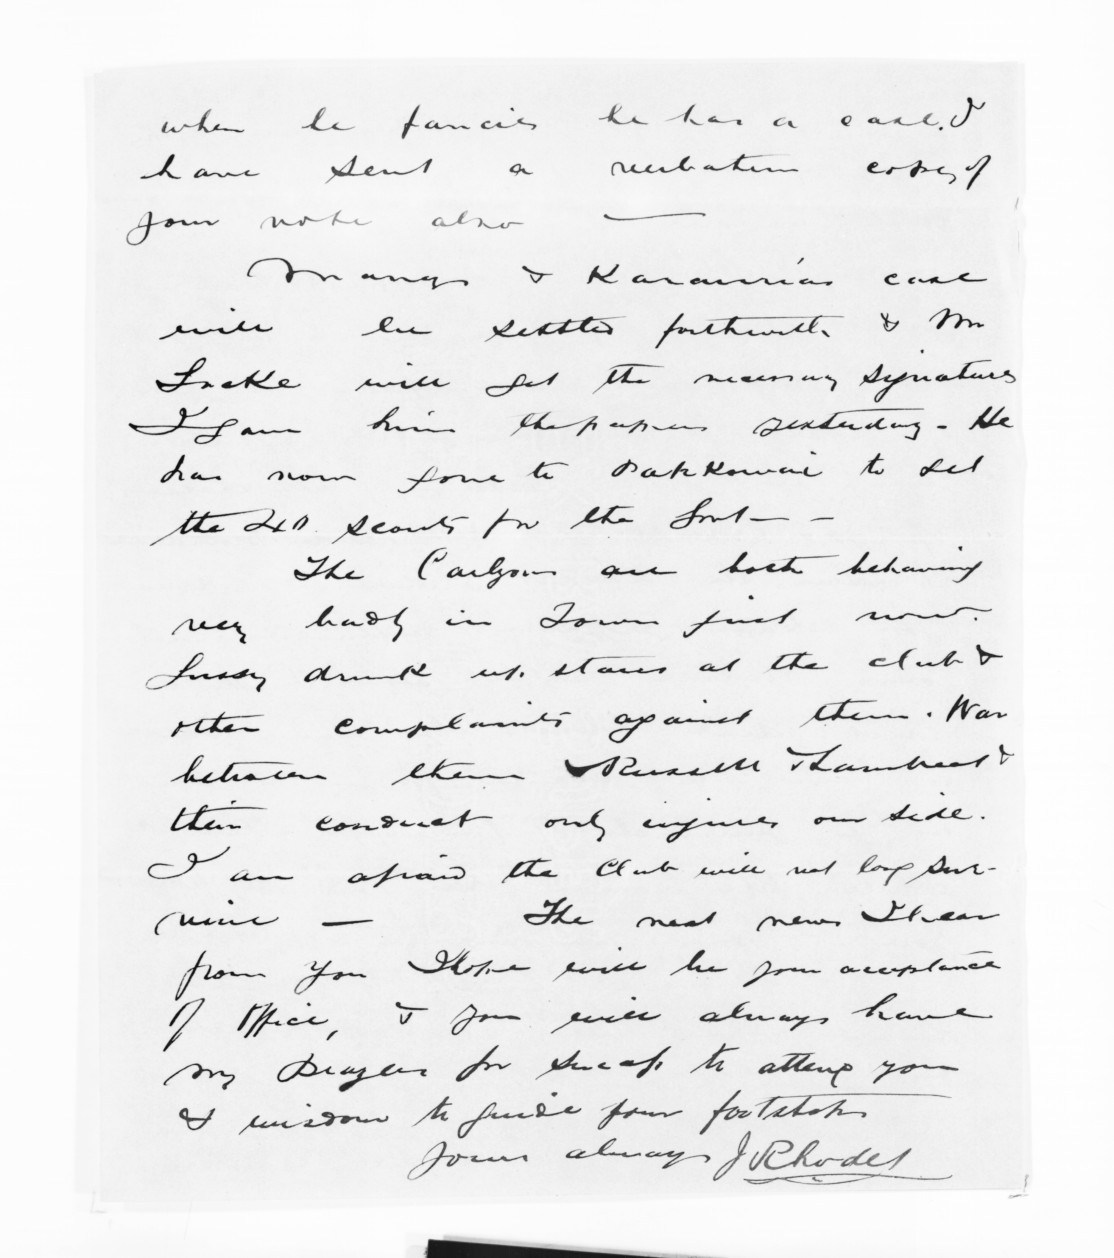 when he fancies he has a case. I
have sent a verbatim copy of
your note also —
Manga & Karauria's case
will be settled forthwith & Mr
Locke will get the necessary signatures
I gave him the papers yesterday - He
has now gone to Pakkowai to set
the scouts for the
The Carlyons are both behaving
very badly in Town just now.
Fussy drunk up stairs at the club &
other complaints against them. War
between them Russell & Lambert &
their conduct only injures our side.
I am afraid the Club will not long sur-
vive — The next news I hear
from you I hope will be your acceptance
of Office, & you will always have
my Prayers for success to attend you
& wisdom to guide your footsteps
yours always J Rhodes